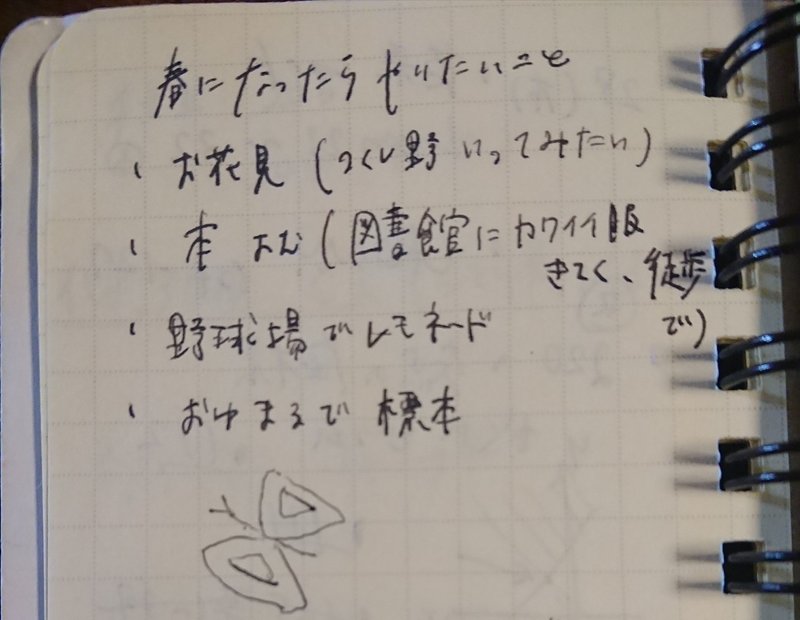 春になったらやりたいこと
・お花見（つくし野いってみたい）
・本よむ（図書館にカワイイ服
きてく、徒歩
で）
・野球場でレモネード
・おゆまるで標本